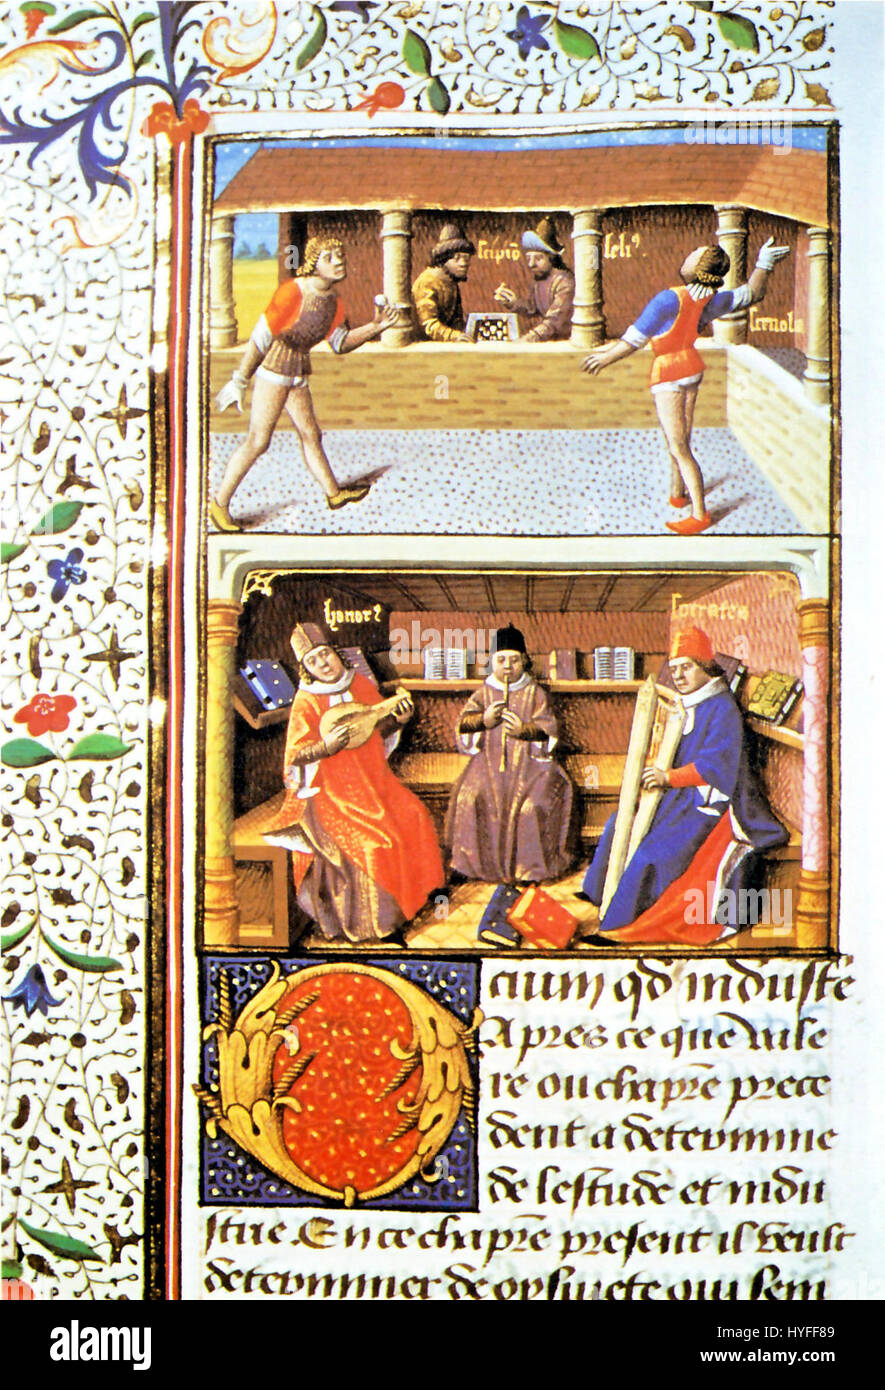 scipiō
leliꝰ
scevola
honorꝰ
socrates
alamy
cium qd̄ industē
Apres ce que vale
re ou chapr̄e prece
dent a determine
de lestude et indu
strie. En ce chapr̄e present il veult
determiner de oysiuete qui sem
alamy stock photo
HYFF89
www.alamy.com